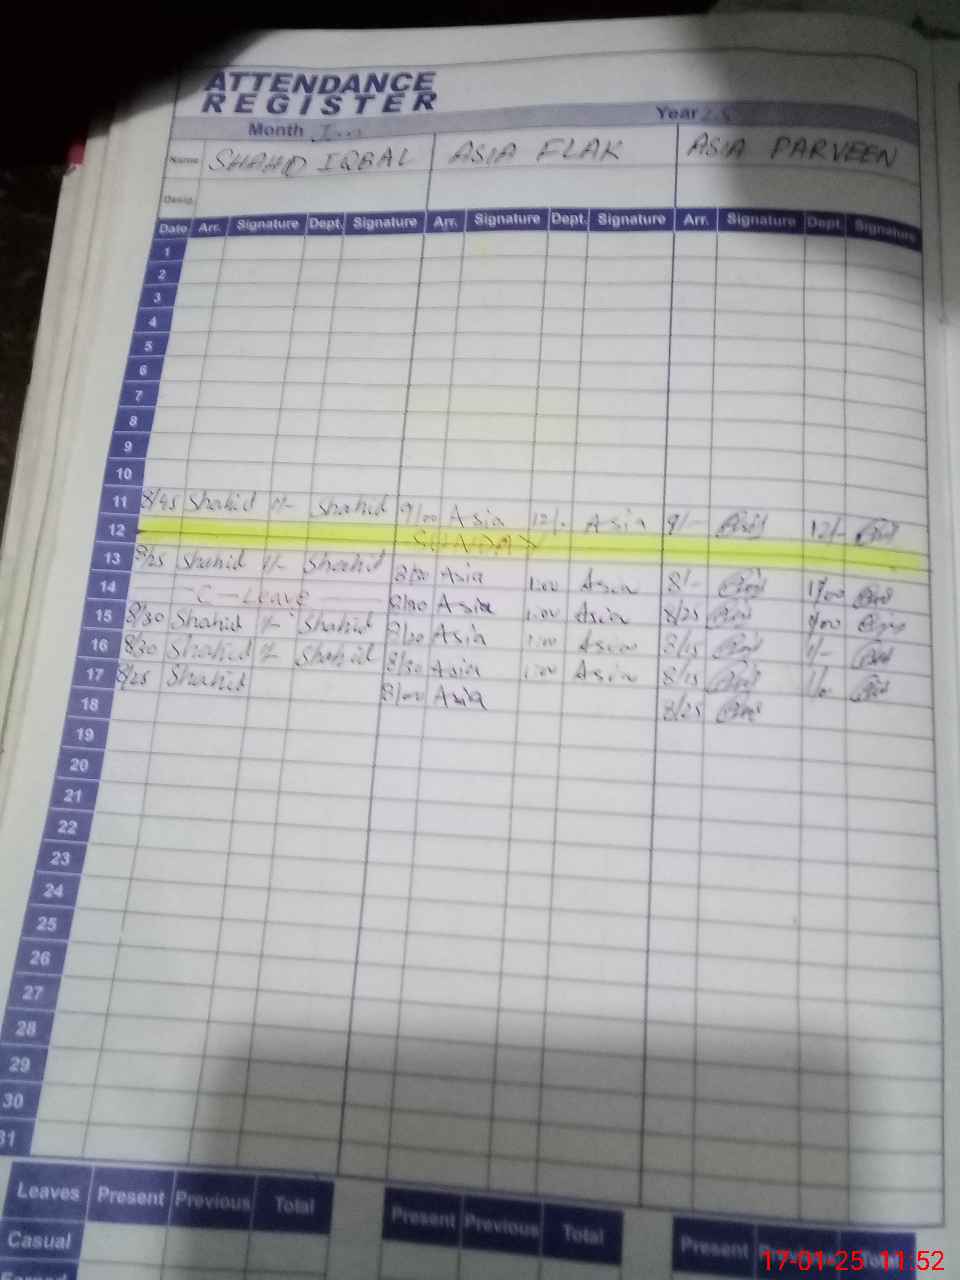 ATTENDANCE
REGISTER
Month Jan Year 25
Name SHAHID IQBAL ASIA FLAK ASIA PARVEEN
Desig.
Date Arr. Signature Dept. Signature Arr. Signature Dept. Signature Arr. Signature Dept. Signature
1
2
3
4
5
6
7
8
9
10
11 8/45 Shahid 1/- Shahid 9/00 Asia 12/- Asia 9/- 12/-
12 SUNDAY
13 8/25 Shahid 1/- Shahid 8/30 Asia 1:00 Asia 8/- 1/00
14 C-Leave 8/30 Asia 1:00 Asia 8/25 1/00
15 8/30 Shahid 1/- Shahid 8/30 Asia 1:00 Asia 8/25 1/-
16 8/30 Shahid 1/- Shahid 8/30 Asia 1:00 Asia 8/25
17 8/25 Shahid 8/00 Asia 8/25
18
19
20
21
22
23
24
25
26
27
28
29
30
31
Leaves Present Previous Total Present Previous Total Present Previous Total
Casual
Earned
17-01-25 11:52